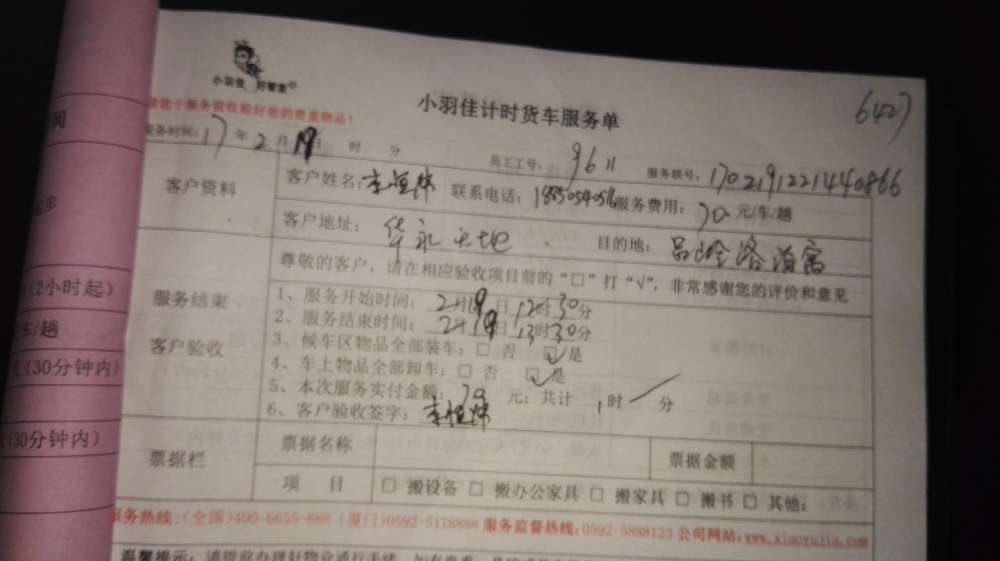 小羽佳 好管家
小羽佳计时货车服务单
6427
请在于服务前收拾好您的贵重物品!
服务时间:17年2月19日 时 分 员工工号:9611 服务联号:1702191221440866
间
客户资料 客户姓名: 联系电话: 服务费用:70元/车/趟
客户地址:华永天地 目的地:
尊敬的客户,请在相应验收项目前的“□”打“√”,非常感谢您的评价和意见
(2小时起)
车/趟
(30分钟内)
(30分钟内)
服务结束
客户验收
1、服务开始时间:2月19日12时30分
2、服务结束时间:2月19日13时30分
3、候车区物品全部装车:□ 否 ☑是
4、车上物品全部卸车:□ 否 ☑是
5、本次服务实付金额:70元;共计 1时/分
6、客户验收签字:
票据栏 票据名称 票据金额
项 目 □ 搬设备 □ 搬办公家具 □ 搬家具 □ 搬书 □ 其他:
服务热线:(全国)400-6655-888 (厦门)0592-5178888 服务监督热线:0592-5888123 公司网站:www.xiaoyujia.com
温馨提示:请提前办理好物业通行手续